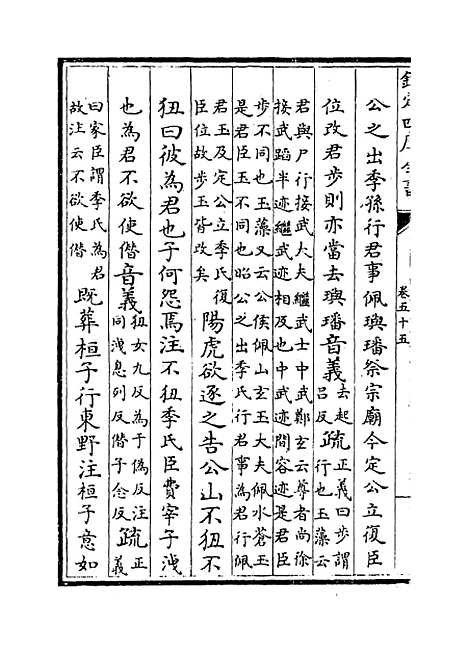 欽定四庫全書
卷五十五
公之出季孫行君事佩璵璠祭宗廟今定公立復臣
位改君步則亦當去璵璠音義去起呂反疏正義曰步謂行也玉藻云
君與尸行接武大夫繼武士中武鄭玄云尊者尚徐
接武蹈半迹繼武迹相及也中武迹間容迹是君臣
步不同也玉藻又云公侯佩山玄玉大夫佩水蒼玉
是君臣玉不同也昭公之出季氏行君事為君行佩
君玉及定公立季氏復臣位故步玉皆改矣陽虎欲逐之告公山不狃不
狃曰彼為君也子何怨焉注不狃季氏臣費宰子洩
也為君不欲使僭音義狃女九反為于偽反注同洩息列反僭子念反疏正義
曰家臣謂季氏為君故注云不欲使僭既葬桓子行東野注桓子意如